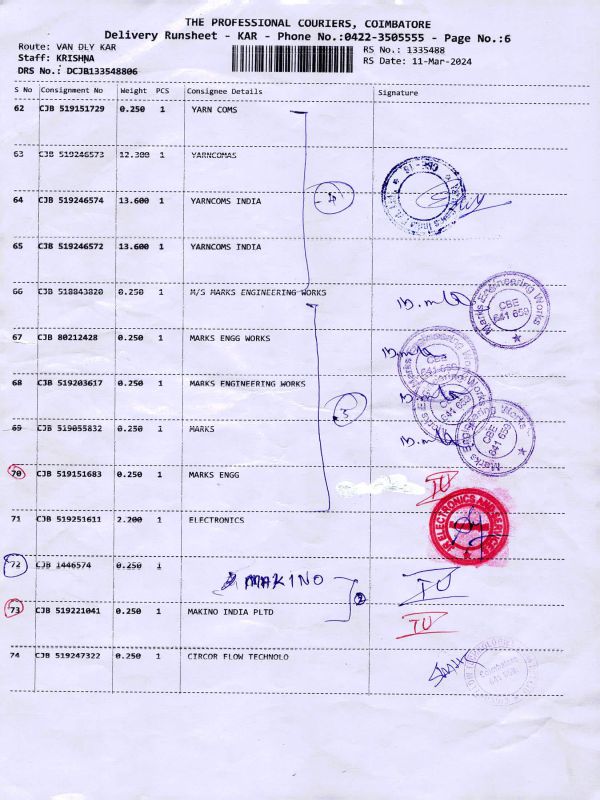 THE PROFESSIONAL COURIERS, COIMBATORE
Delivery Runsheet - KAR - Phone No.:0422-3505555 - Page No.:6
Route: VAN DLY KAR RS No.: 1335488
Staff: KRISHNA RS Date: 11-Mar-2024
DRS No.: DCJB133548806
S No Consignment No Weight PCS Consignee Details Signature
62 CJB 519151729 0.250 1 YARN COMS
63 CJB 519246573 12.300 1 YARNCOMAS
64 CJB 519246574 13.600 1 YARNCOMS INDIA
65 CJB 519246572 13.600 1 YARNCOMS INDIA
66 CJB 518843820 0.250 1 M/S MARKS ENGINEERING WORKS
Marks Engineering Works CBE 641 659
67 CJB 80212428 0.250 1 MARKS ENGG WORKS
68 CJB 519203617 0.250 1 MARKS ENGINEERING WORKS
69 CJB 519055832 0.250 1 MARKS
3
Marks Engineering Works CBE
70 CJB 519151683 0.250 1 MARKS ENGG
71 CJB 519251611 2.200 1 ELECTRONICS
72 CJB 1446574 0.250 1
MAKINO
2
73 CJB 519221041 0.250 1 MAKINO INDIA PLTD
74 CJB 519247322 0.250 1 CIRCOR FLOW TECHNOLO
Coimbatore